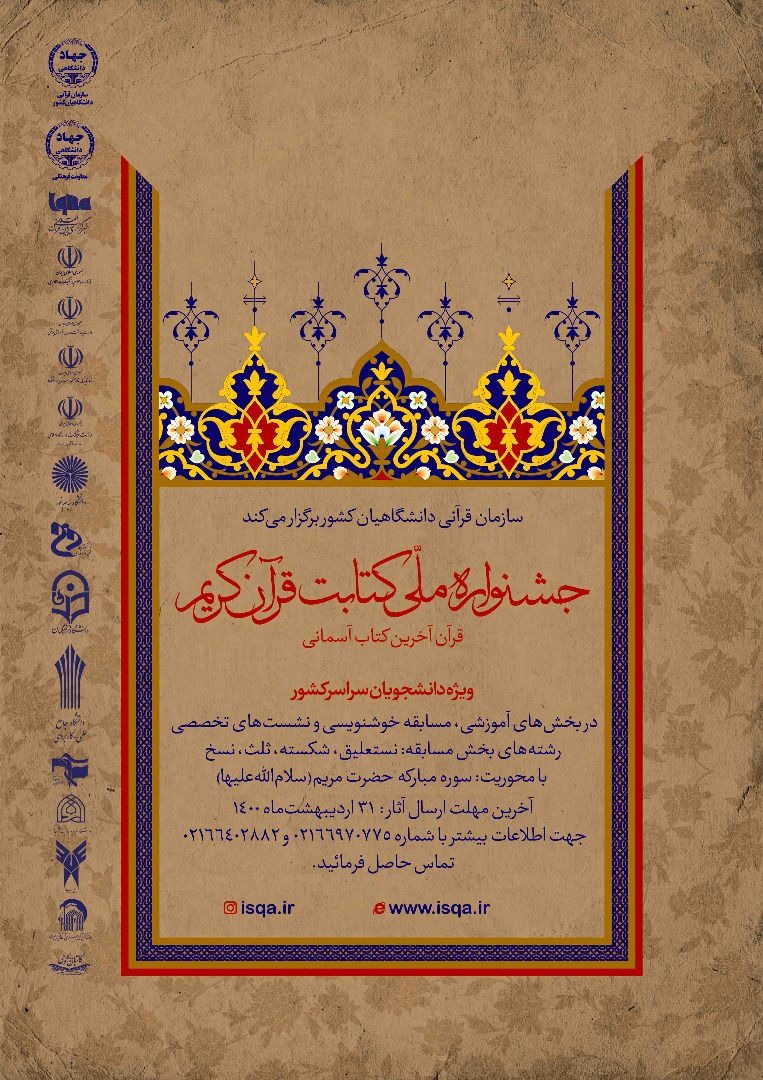 سازمان قرآنی دانشگاهیان کشور برگزار می‌کند
جشنواره ملّی کتابت قرآن کریم
قرآن آخرین کتاب آسمانی
ویژه دانشجویان سراسر کشور
در بخش‌های آموزشی، مسابقه خوشنویسی و نشست‌های تخصصی
رشته‌های بخش مسابقه: نستعلیق، شکسته، ثلث، نسخ
با محوریت: سوره مبارکه حضرت مریم (سلام‌الله‌علیها)
آخرین مهلت ارسال آثار: ۳۱ اردیبهشت‌ماه ۱۴۰۰
جهت اطلاعات بیشتر با شماره ۰۲۱۶۶۹۷۰۷۷۵ و ۰۲۱۶۶۴۰۲۸۸۲
تماس حاصل فرمائید.
isqa.ir www.isqa.ir
جهاد
دانشگاهی
سازمان قرآنی
دانشگاهیان کشور
جهاد
دانشگاهی
معاونت فرهنگی
iqna
دانشگاه جامع
علمی-کاربردی